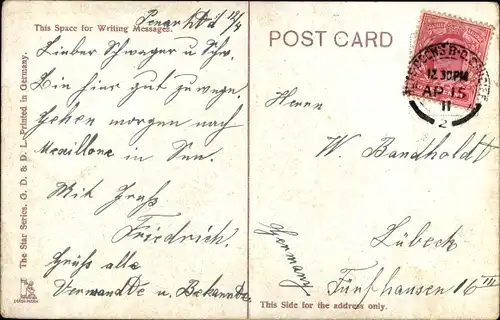 This Space for Writing Messages.
Penarth d. 12/4
Lieber Schwager u Schw.
Bin hier gut zuwege.
Gehen morgen nach
Mexillone in See.
Mit Gruß
Friedrich.
Grüß alle
Verwandte u. Bekannte
The Star Series. G. D. & D. L.-Printed in Germany.
POST CARD
12.30PM
AP 15
11
2
Herrn
W. Bandholdt
Lübeck
Fünfhausen 16 III
Germany
This Side for the address only.